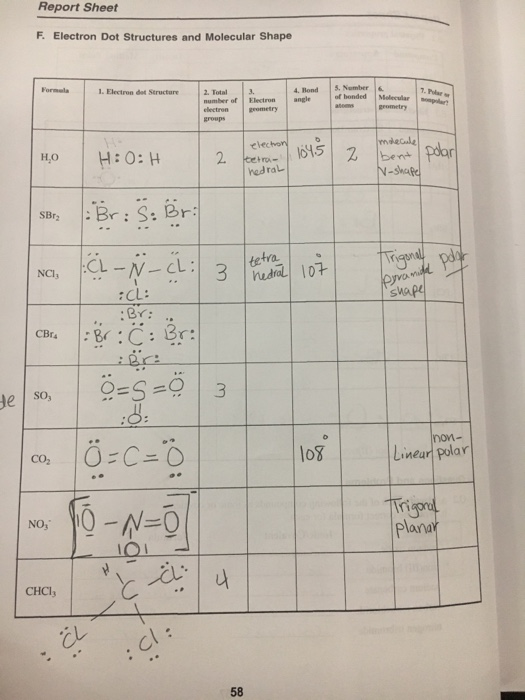 Report Sheet
F. Electron Dot Structures and Molecular Shape
Formula 1. Electron dot Structure 2. Total number of electron groups 3. Electron geometry 4. Bond angle 5. Number of bonded atoms 6. Molecular geometry 7. Polar or nonpolar?
H₂O H:O:H 2 electron tetra-hedral 104.5° 2 molecule bent V-shape polar
SBr₂ :Br:S:Br:
NCl₃ :CL-N-CL: :CL: 3 tetra hedral 107° Trigonal pyramidal shape polar
CBr₄ :Br: :Br:C:Br: :Br:
SO₃ O=S=O :O: 3
CO₂ O=C=O 108° Linear non-polar
NO₃⁻ [O-N=O]⁻ |O| Trigonal planar
CHCl₃ H C Cl: 4
:Cl :Cl:
58